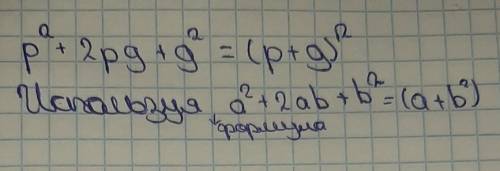 p² + 2pg + g² = (p+g)²
Используя a² + 2ab + b² = (a+b²)
формула